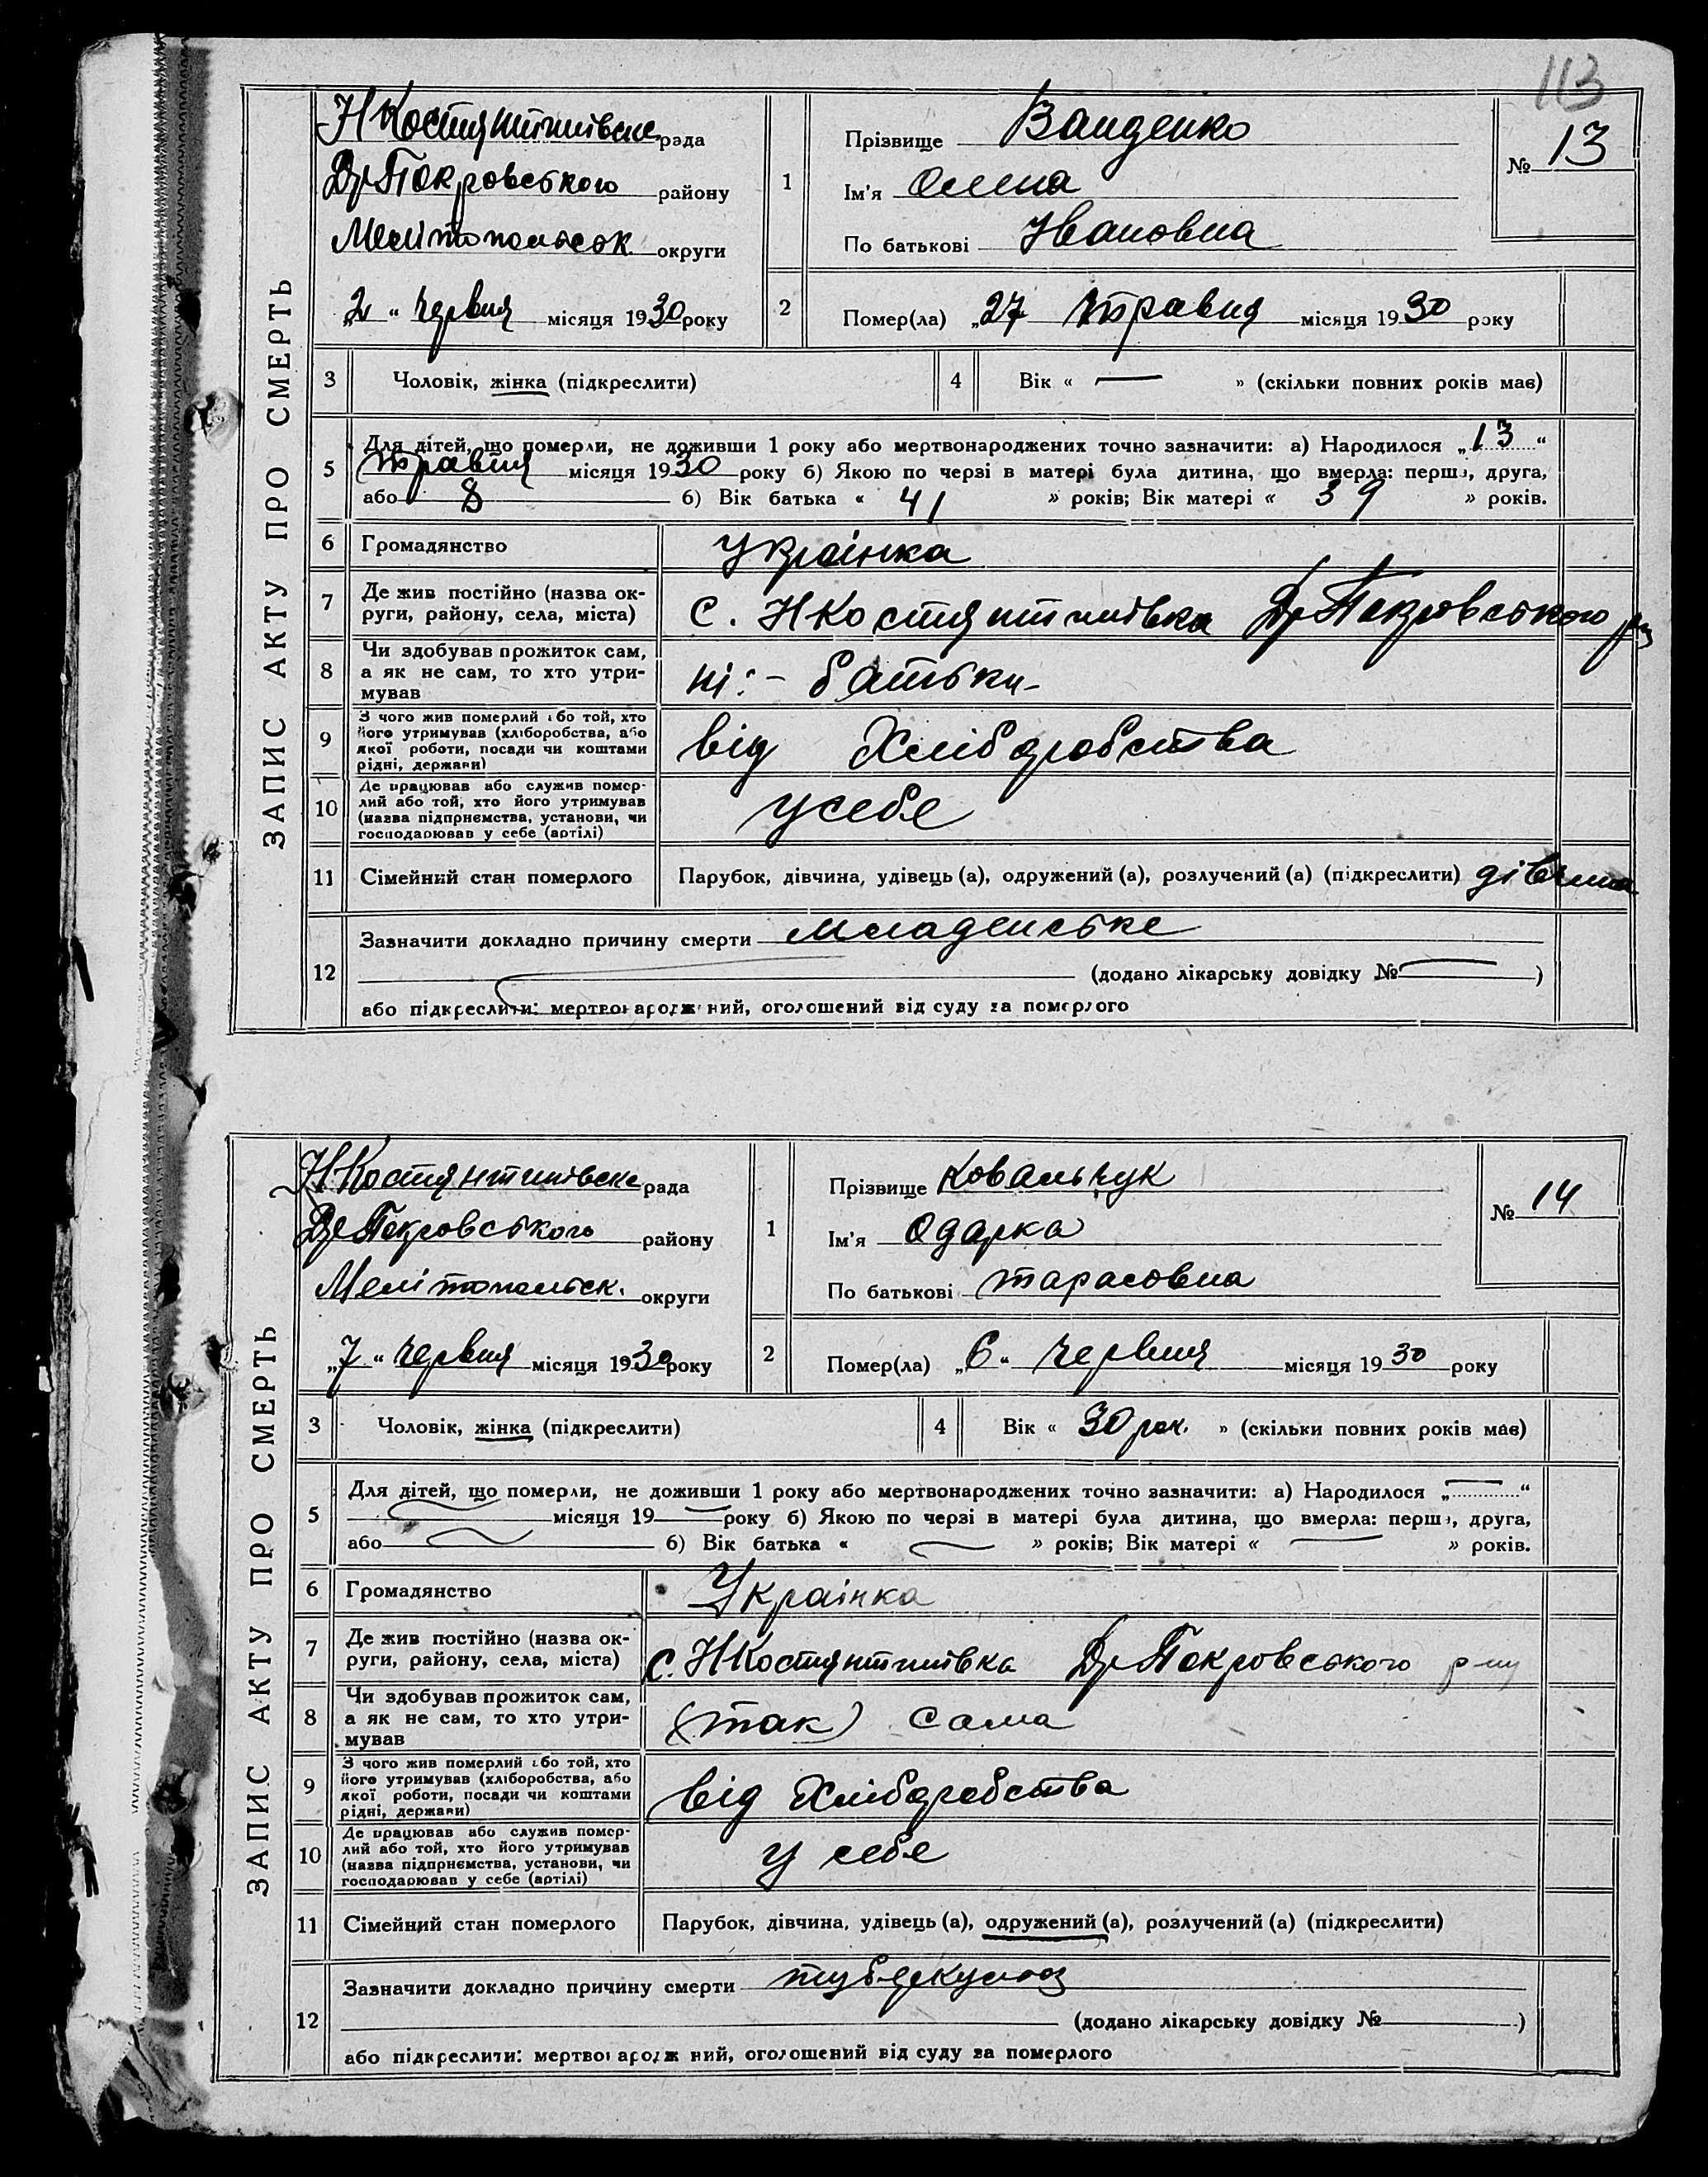 113
ЗАПИС АКТУ ПРО СМЕРТЬ
НКостянтинівськ рада
Др Покровського району
Мелітопольськ округи
„2“ червня місяця 1930 року
1 Прізвище Ванденко
Ім'я Олена
По батькові Івановна
№ 13
2 Помер(ла) „27 травня місяця 1930 року
3 Чоловік, жінка (підкреслити)
4 Вік « — » (скільки повних років мав)
5 Для дітей, що померли, не доживши 1 року або мертвонароджених точно зазначити: а) Народилося „13“
травня місяця 1930 року б) Якою по черзі в матері була дитина, що вмерла: перша, друга,
або 8 б) Вік батька « 41 » років; Вік матері « 39 » років.
6 Громадянство Українка
7 Де жив постійно (назва округи, району, села, міста) с. НКостянтинівка Др Покровського р-ну
8 Чи здобував прожиток сам,
а як не сам, то хто утри-
мував ні:- батьки-
9 З чого жив померлий або той, хто
його утримував (хліборобства, або
якої роботи, посади чи коштами
рідні, держави) від Хліборобства
10 Де працював або служив помер-
лий або той, хто його утримував
(назва підприємства, установи, чи
господарював у себе (артілі) у себе
11 Сімейний стан померлого Парубок, дівчина, удівець (а), одружений (а), розлучений (а) (підкреслити) дівчина
12 Зазначити докладно причину смерти младенське
(додано лікарську довідку № — )
або підкреслити: мертвонароджений, оголошений від суду за померлого
ЗАПИС АКТУ ПРО СМЕРТЬ
НКостянтинівськ рада
Др Покровського району
Мелітопольськ. округи
„7“ червня місяця 1930 року
1 Прізвище Ковальчук
Ім'я Одарка
По батькові Тарасовна
№ 14
2 Помер(ла) „6“ червня місяця 1930 року
3 Чоловік, жінка (підкреслити)
4 Вік « 30 рок. » (скільки повних років мав)
5 Для дітей, що померли, не доживши 1 року або мертвонароджених точно зазначити: а) Народилося „—“
— місяця 19— року б) Якою по черзі в матері була дитина, що вмерла: перша, друга,
або — б) Вік батька « — » років; Вік матері « — » років.
6 Громадянство Українка
7 Де жив постійно (назва ок-
руги, району, села, міста) с. НКостянтинівка Др Покровського р-ну
8 Чи здобував прожиток сам,
а як не сам, то хто утри-
мував (так) сама
9 З чого жив померлий або той, хто
його утримував (хліборобства, або
якої роботи, посади чи коштами
рідні, держави) від Хліборобства
10 Де працював або служив помер-
лий або той, хто його утримував
(назва підприємства, установи, чи
господарював у себе (артілі) у себе
11 Сімейний стан померлого Парубок, дівчина, удівець (а), одружений (а), розлучений (а) (підкреслити)
12 Зазначити докладно причину смерти туберкульоз
(додано лікарську довідку № )
або підкреслити: мертвонароджений, оголошений від суду за померлого